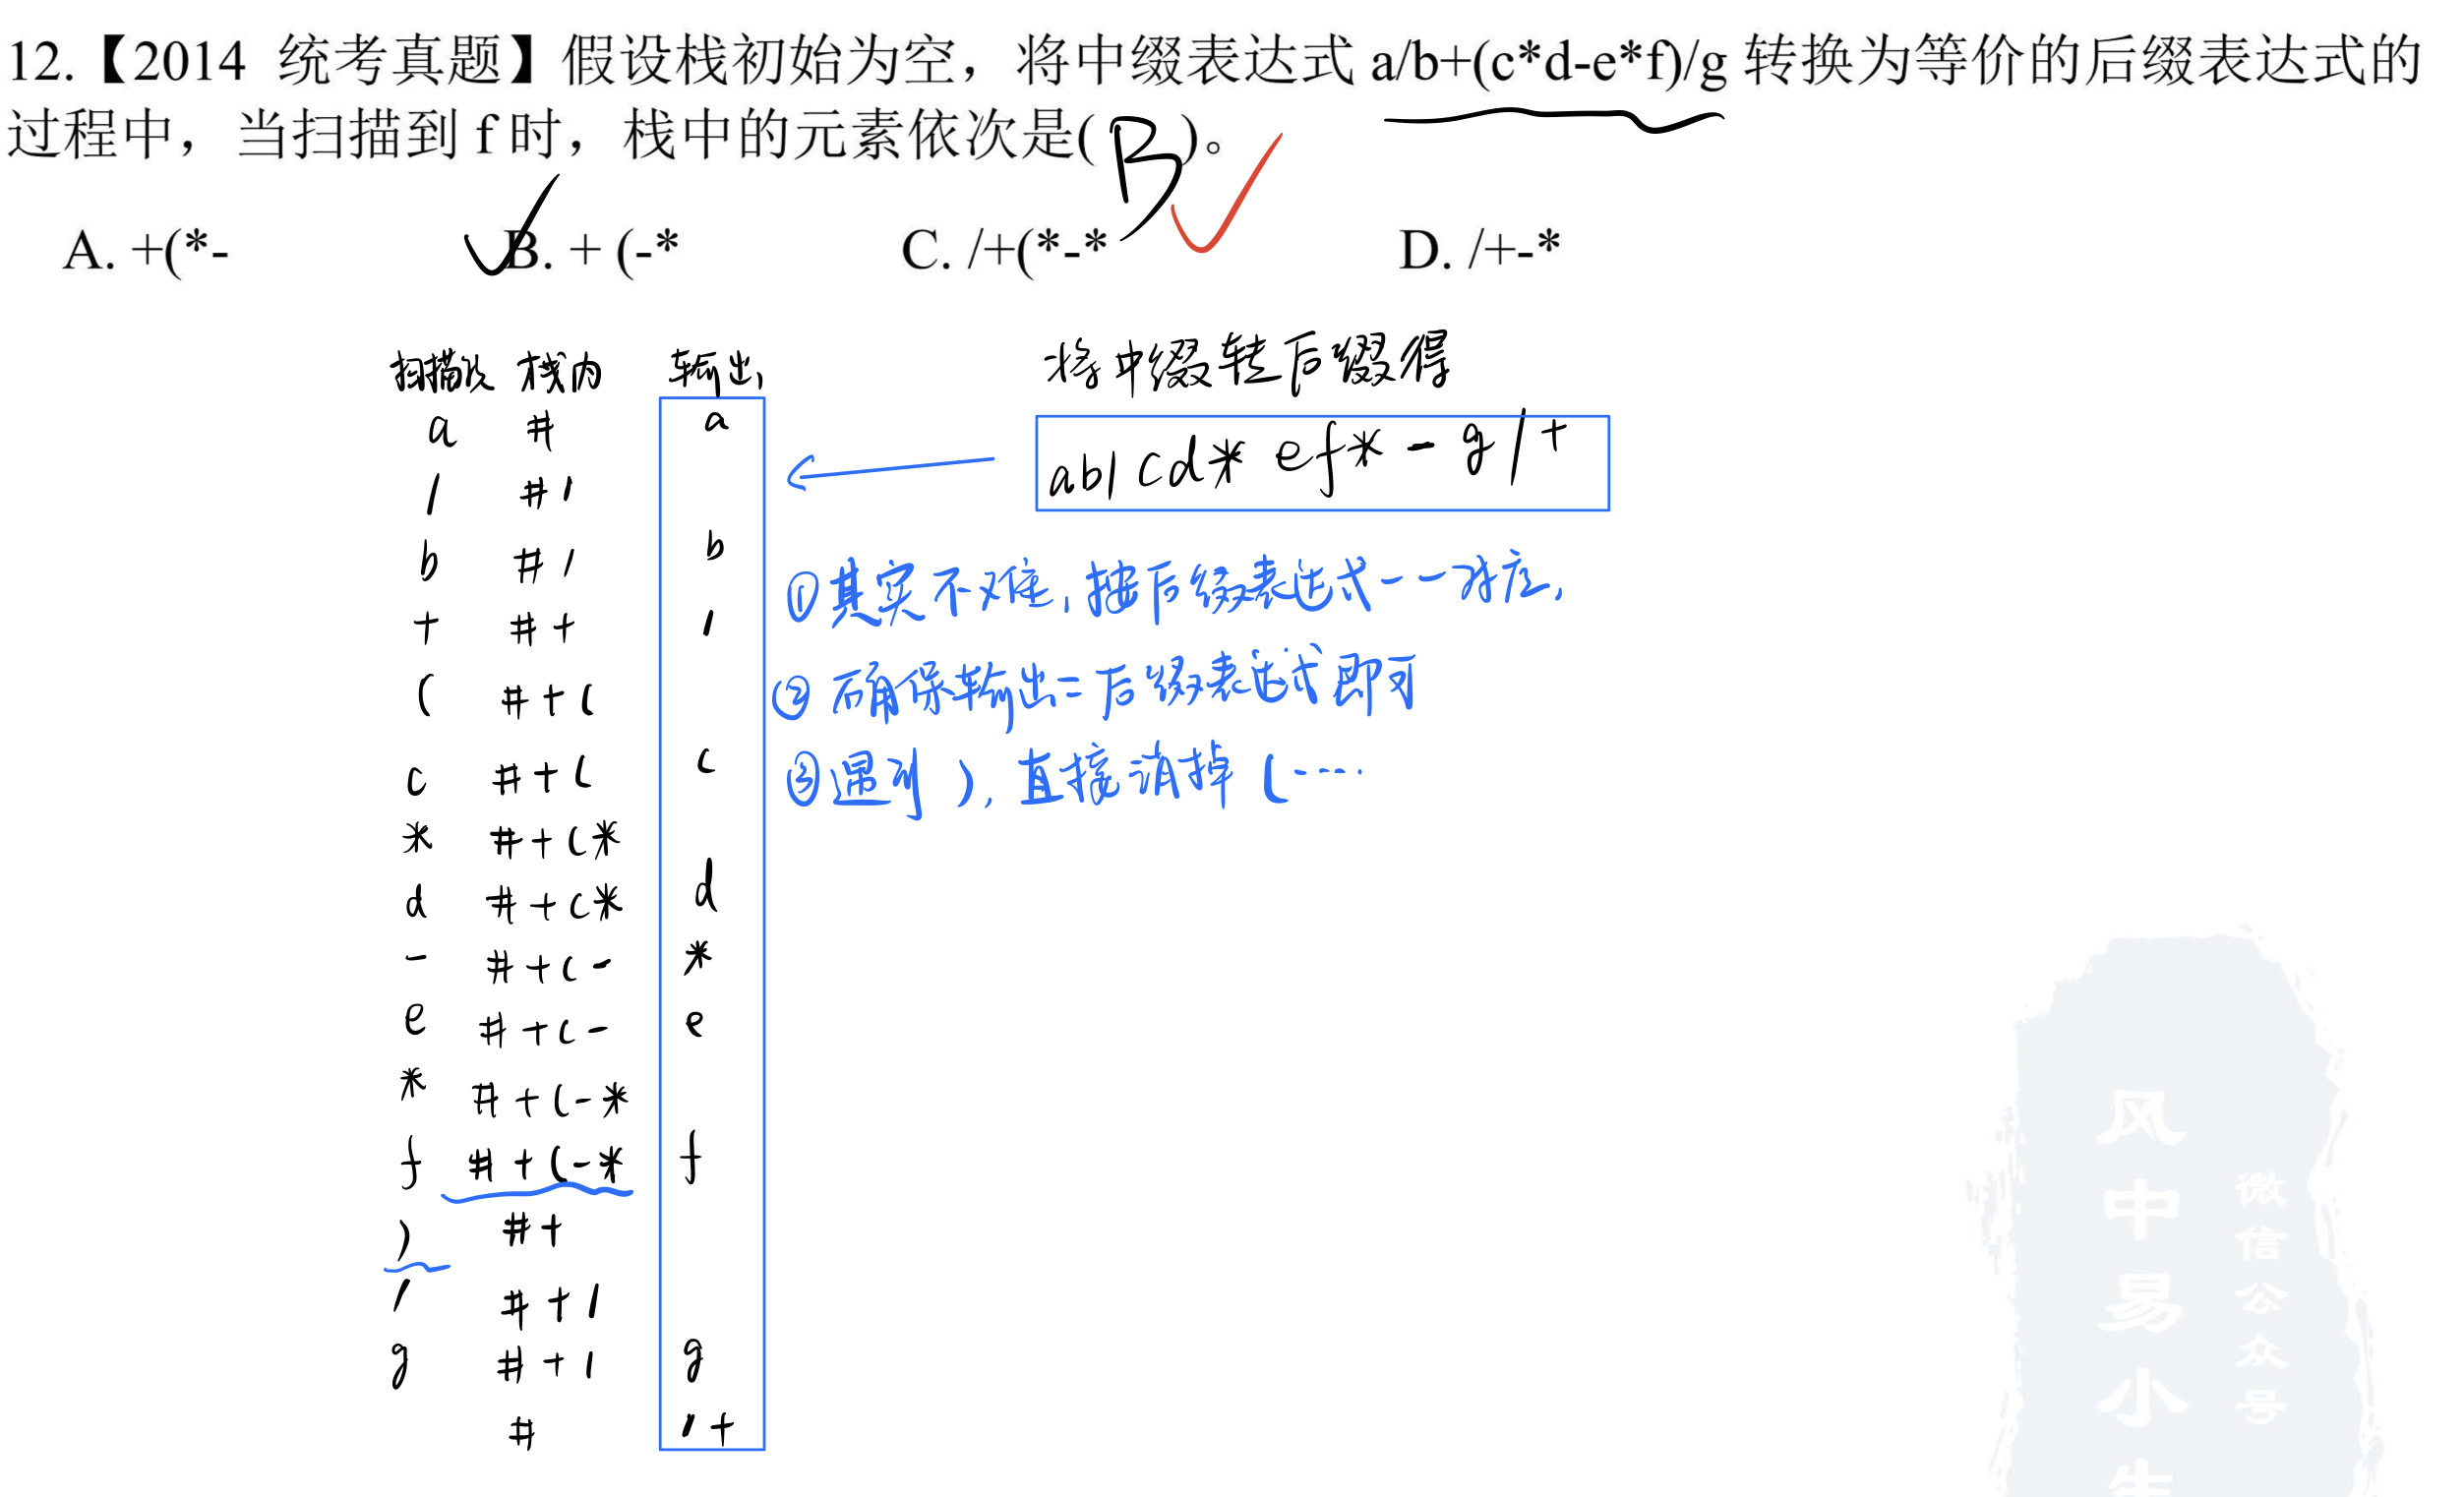 12.【2014 统考真题】假设栈初始为空，将中缀表达式 a/b+(c*d-e*f)/g 转换为等价的后缀表达式的
过程中，当扫描到 f 时，栈中的元素依次是( B )。
A. +(*-  B. + (-*  C. /+(*-*  D. /+-*
扫描以 栈内 输出
a # a
/ #/
b #/ b
+ #+ /
( #+(
c #+( c
* #+(*
d #+(* d
- #+(- *
e #+(- e
* #+(-*
f #+(-* f
) #+
/ #+/
g #+/ g
# /+
将中缀转后缀得
ab/cd*ef*-g/+
①其实不难，按后缀表达式一一对应，
②确保输出=后缀表达式即可
③遇到 )，直接消掉 (……
风中易小生
微信公众号